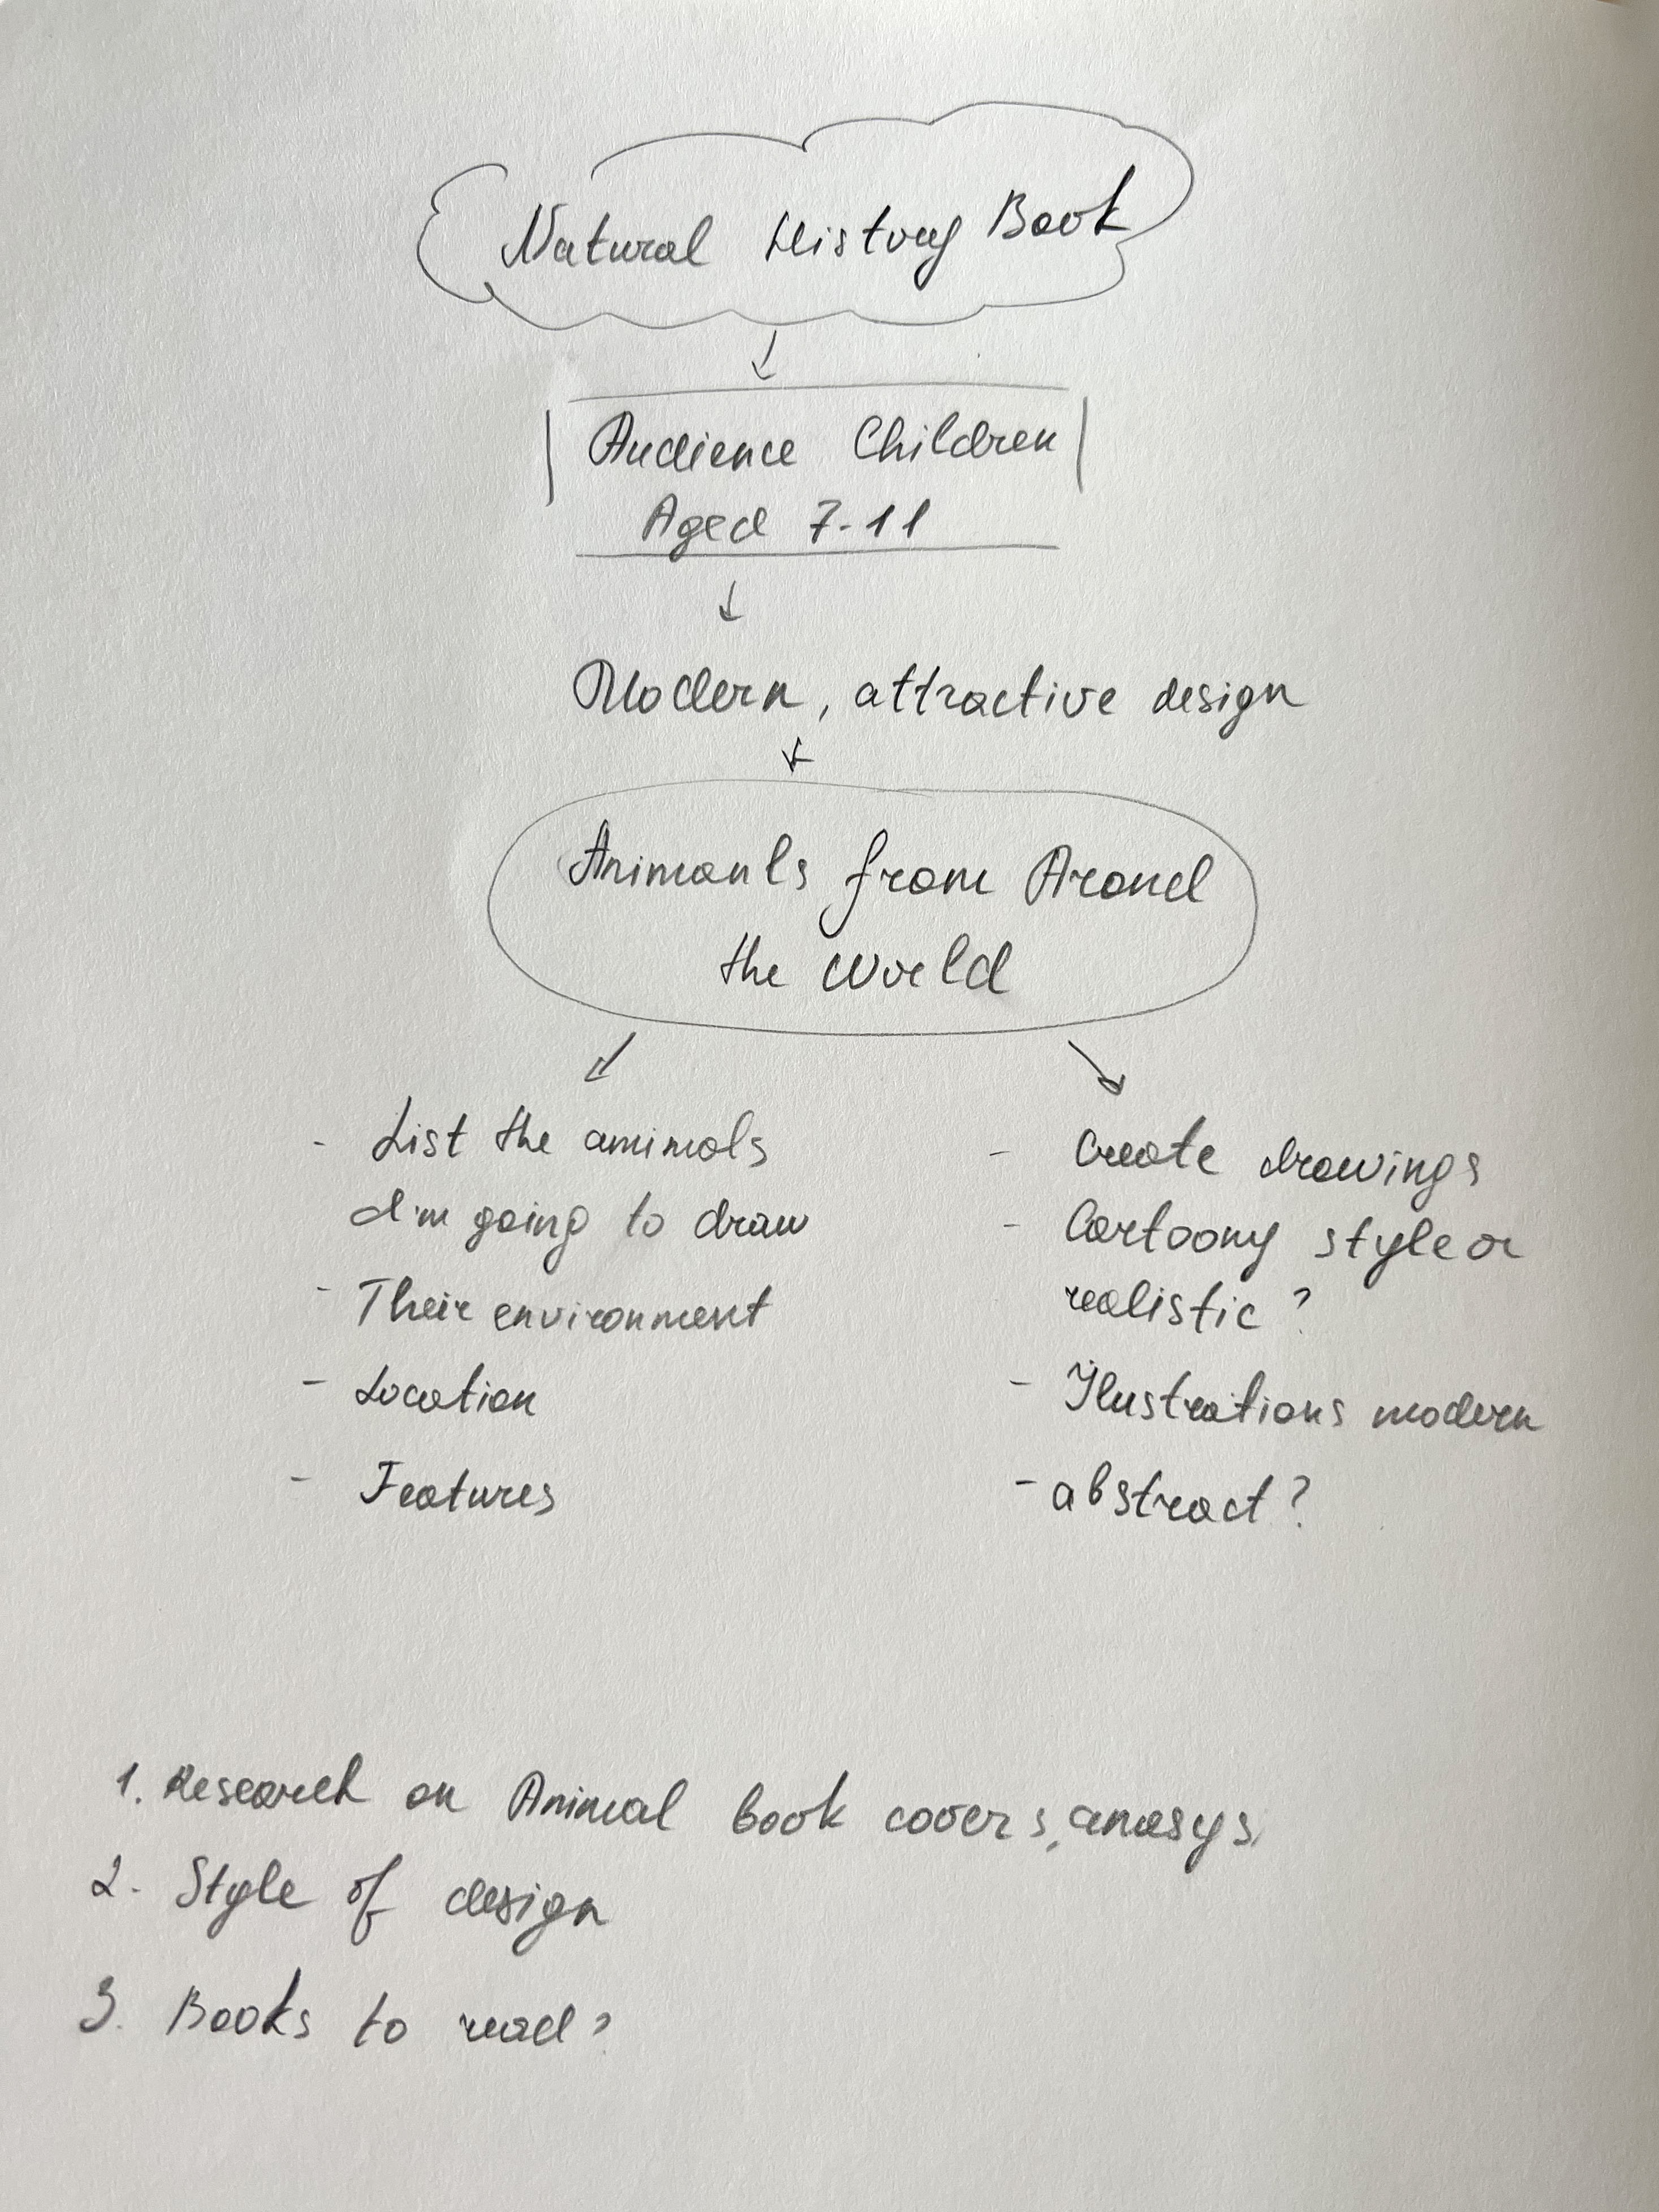 Natural History Book
Audience Children
Aged 7-11
Modern, attractive design
Animanls from Aroud
the World
- List the animals
I'm going to draw
- Their environment
- Location
- Features
- Create drawings
- Cartoony style or
realistic?
- Ilustrations modern
- abstract?
1. Research on Animal book covers, anasys
2. Style of design
3. Books to read?